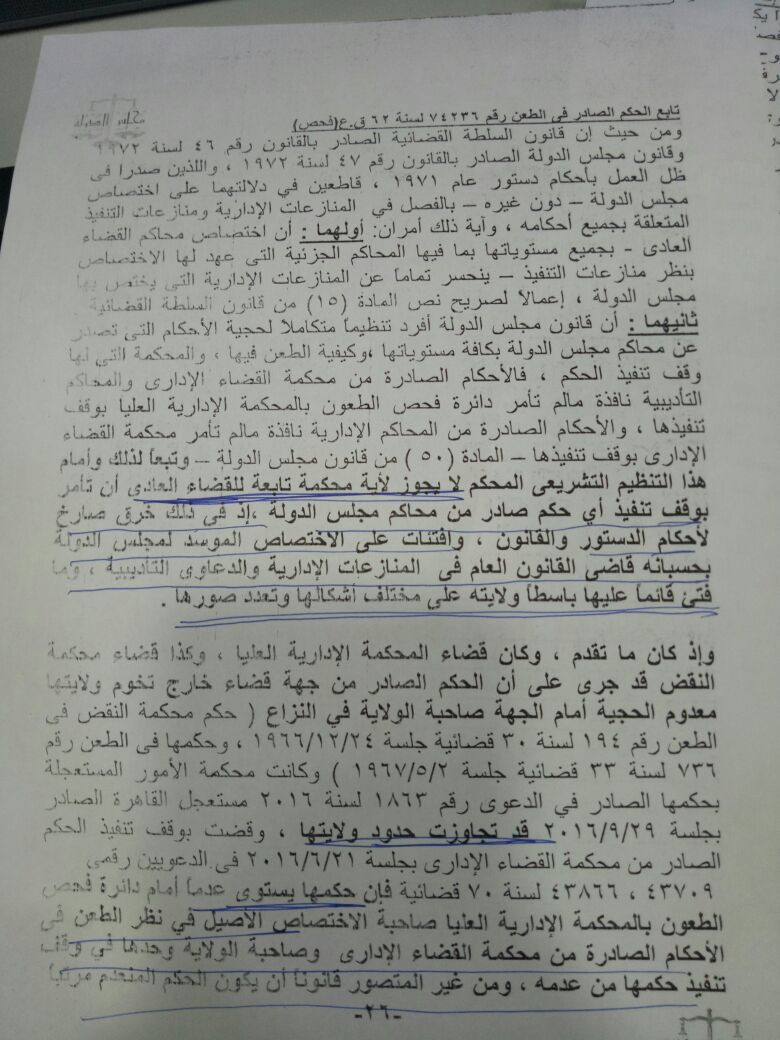 مجلس الدولة
تابع الحكم الصادر فى الطعن رقم ٧٤٢٣٦ لسنة ٦٢ ق.ع(فحص)
ومن حيث إن قانون السلطة القضائية الصادر بالقانون رقم ٤٦ لسنة ١٩٧٢
وقانون مجلس الدولة الصادر بالقانون رقم ٤٧ لسنة ١٩٧٢ ، واللذين صدرا فى
ظل العمل بأحكام دستور عام ١٩٧١ ، قاطعين في دلالتهما على اختصاص
مجلس الدولة – دون غيره – بالفصل في المنازعات الإدارية ومنازعات التنفيذ
المتعلقة بجميع أحكامه ، وآية ذلك أمران: أولهما : أن اختصاص محاكم القضاء
العادى - بجميع مستوياتها بما فيها المحاكم الجزئية التى عهد لها الاختصاص
بنظر منازعات التنفيذ – ينحسر تماماً عن المنازعات الإدارية التي يختص بها
مجلس الدولة ، إعمالاً لصريح نص المادة (١٥) من قانون السلطة القضائية
ثانيهما : أن قانون مجلس الدولة أفرد تنظيماً متكاملاً لحجية الأحكام التى تصدر
عن محاكم مجلس الدولة بكافة مستوياتها ،وكيفية الطعن فيها ، والمحكمة التي لها
وقف تنفيذ الحكم ، فالأحكام الصادرة من محكمة القضاء الإدارى والمحاكم
التأديبية نافذة مالم تأمر دائرة فحص الطعون بالمحكمة الإدارية العليا بوقف
تنفيذها ، والأحكام الصادرة من المحاكم الإدارية نافذة مالم تأمر محكمة القضاء
الإدارى بوقف تنفيذها – المادة (٥٠) من قانون مجلس الدولة – وتبعاً لذلك وأمام
هذا التنظيم التشريعى المحكم لا يجوز لأية محكمة تابعة للقضاء العادى أن تأمر
بوقف تنفيذ أي حكم صادر من محاكم مجلس الدولة ،إذ فى ذلك خرق صارخ
لأحكام الدستور والقانون ، وافتئات على الاختصاص الموسد لمجلس الدولة
بحسبانه قاضى القانون العام فى المنازعات الإدارية والدعاوى التأديبية ، وما
فتئ قائماً عليها باسطاً ولايته على مختلف أشكالها وتعدد صورها .
وإذ كان ما تقدم ، وكان قضاء المحكمة الإدارية العليا ، وكذا قضاء محكمة
النقض قد جرى على أن الحكم الصادر من جهة قضاء خارج تخوم ولايتها
معدوم الحجية أمام الجهة صاحبة الولاية في النزاع ( حكم محكمة النقض فى
الطعن رقم ١٩٤ لسنة ٣٠ قضائية جلسة ١٩٦٦/١٢/٢٤ ، وحكمها فى الطعن رقم
٧٣٦ لسنة ٣٣ قضائية جلسة ١٩٦٧/٥/٢ ) وكانت محكمة الأمور المستعجلة
بحكمها الصادر في الدعوى رقم ١٨٦٣ لسنة ٢٠١٦ مستعجل القاهرة الصادر
بجلسة ٢٠١٦/٩/٢٩ قد تجاوزت حدود ولايتها ، وقضت بوقف تنفيذ الحكم
الصادر من محكمة القضاء الإدارى بجلسة ٢٠١٦/٦/٢١ فى الدعويين رقمى
٤٣٧٠٩ ، ٤٣٨٦٦ لسنة ٧٠ قضائية فإن حكمها يستوى عدماً أمام دائرة فحص
الطعون بالمحكمة الإدارية العليا صاحبة الاختصاص الأصيل في نظر الطعن فى
الأحكام الصادرة من محكمة القضاء الإدارى وصاحبة الولاية وحدها في وقف
تنفيذ حكمها من عدمه ، ومن غير المتصور قانوناً أن يكون الحكم المنعدم مرتباً
-٢٦-